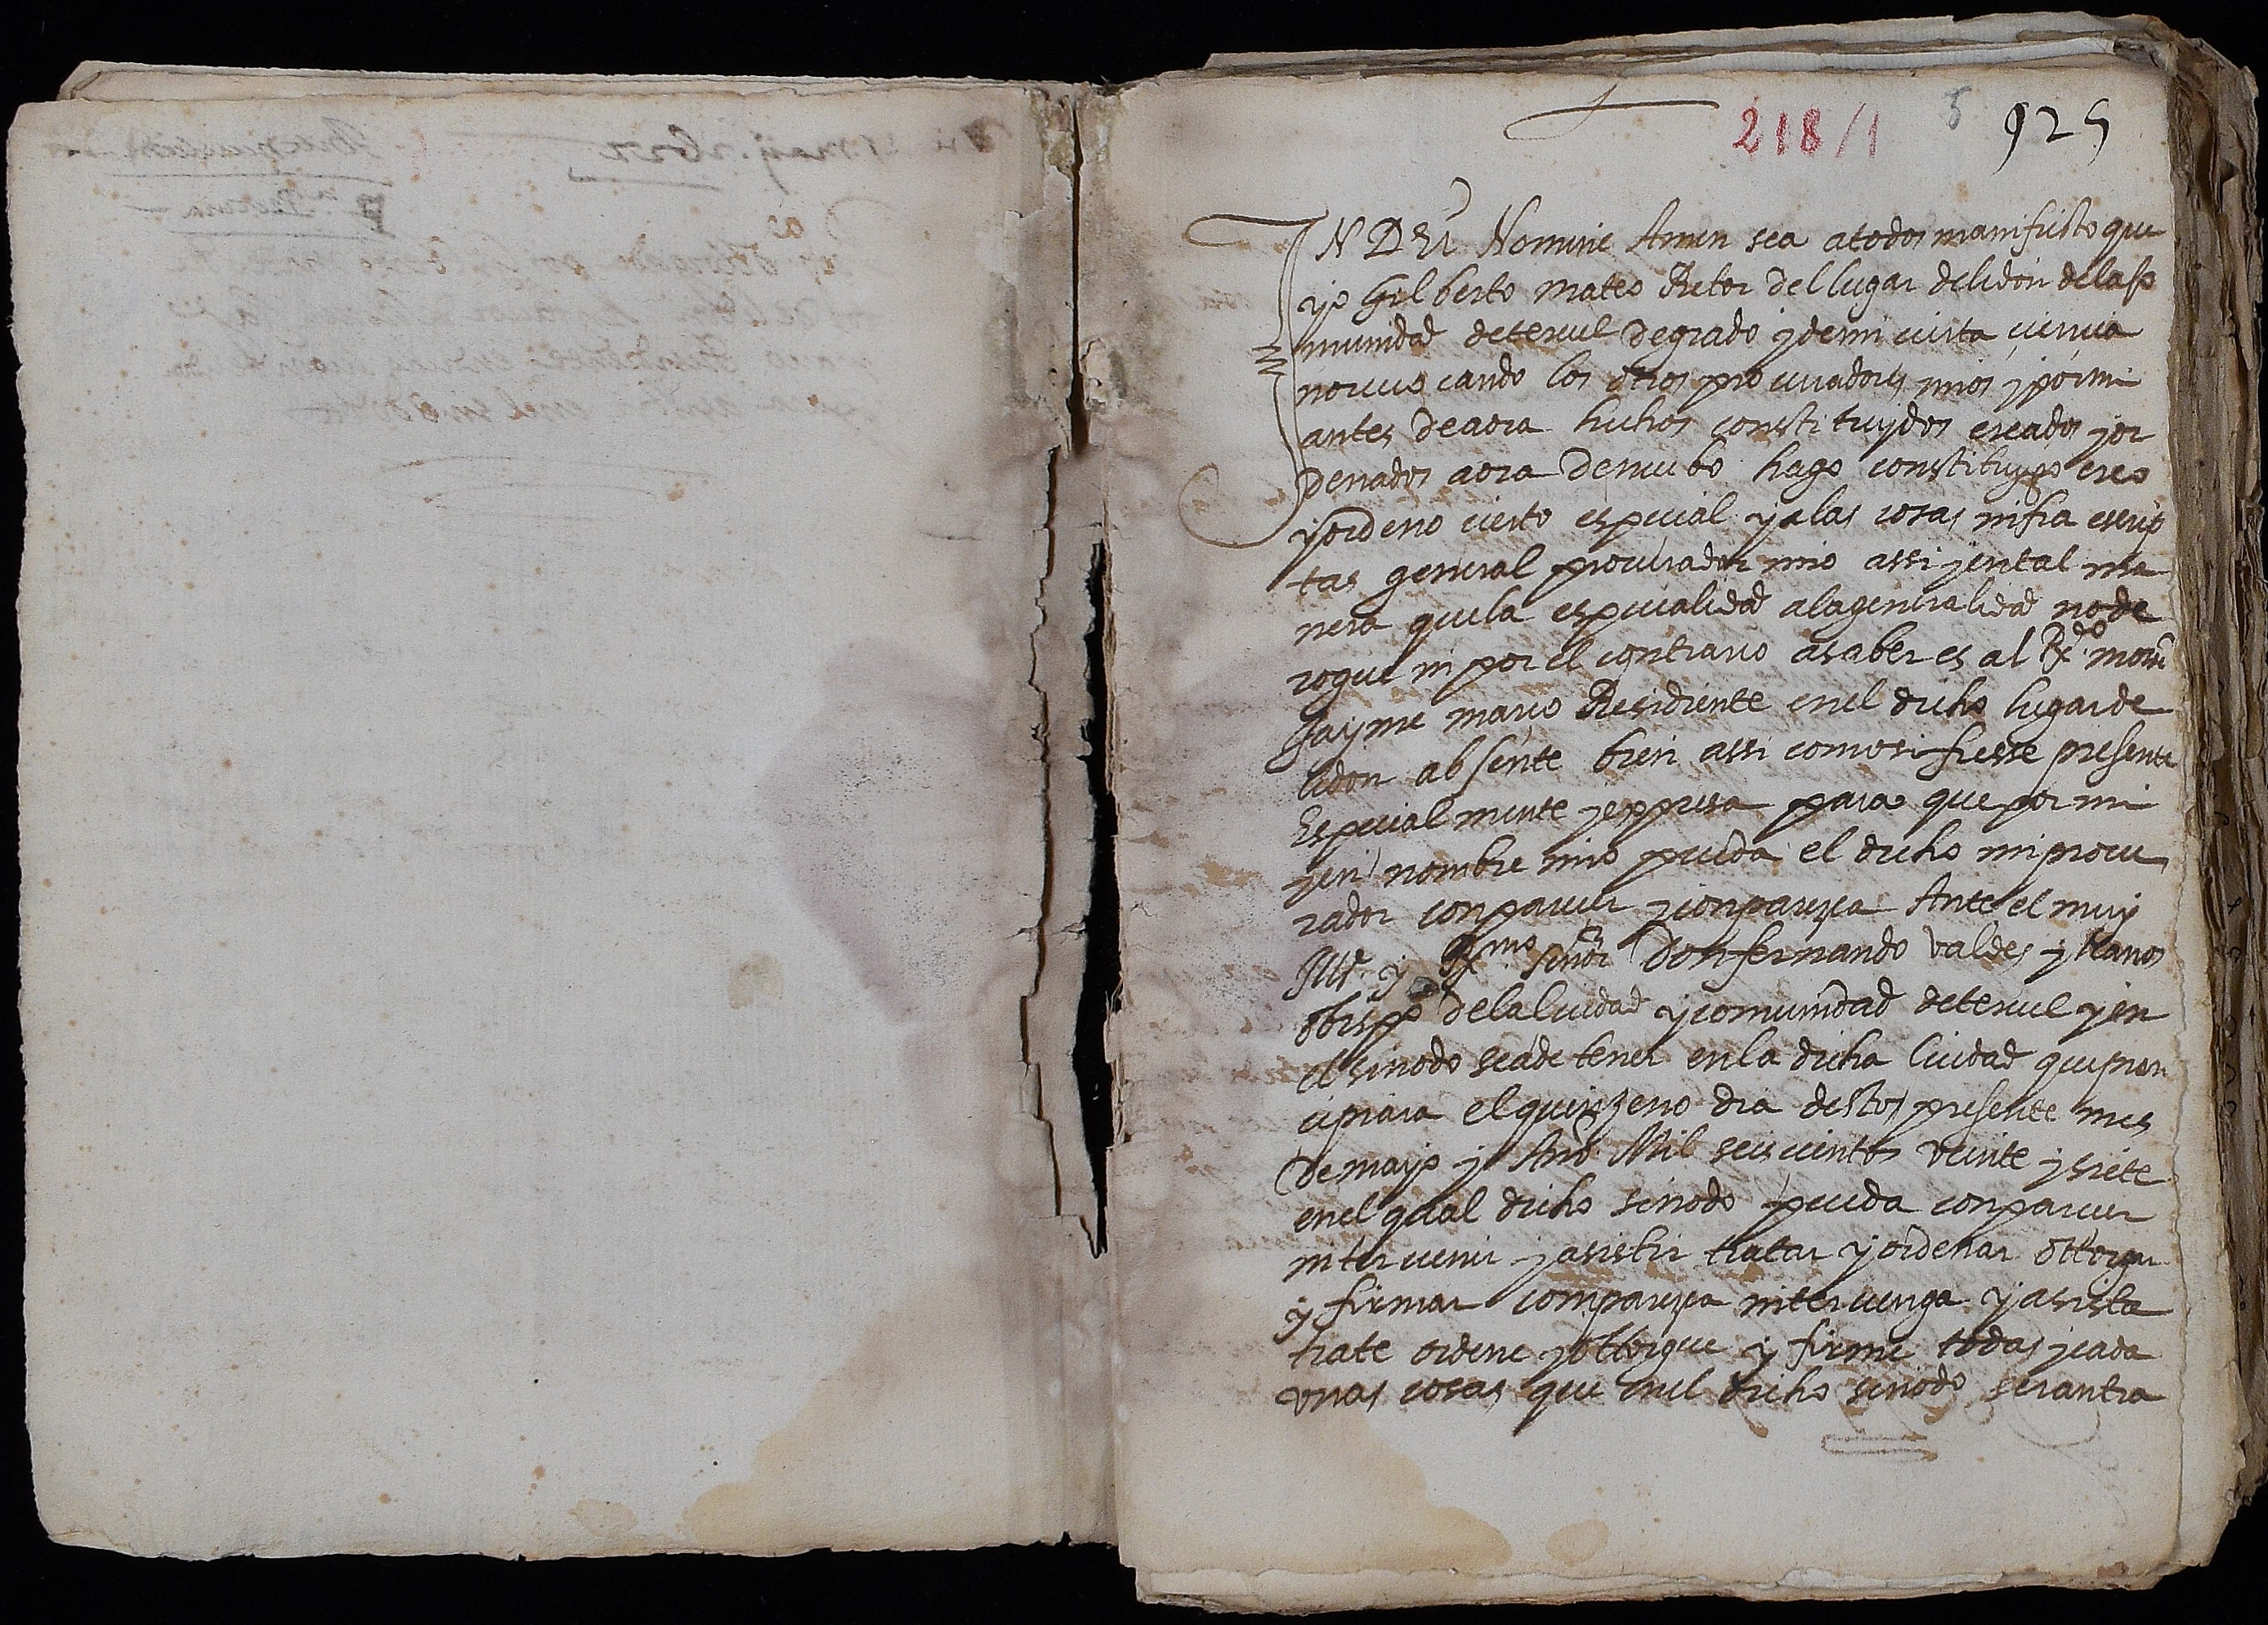 218/1 5 925
IN DEI Nomine Amen sea atodos manifiesto que
yo Gilberto mateo Retor del lugar delidon dela co
munidad deteruel Degrado y demi cierta ciencia
no reuocando los otros procuradores mios y por mi
antes deaora hechos constituydos creados y or
denados aora denuebo hago constituygo creo
y ordeno cierto especial y a las cosas infra escrip
tas general procurador mio assi y ental ma
nera quela especialidad ala generalidad no de
rogue ni por el contrario asaber es al Rdo mosen
Jayme marco Residiente enel dicho lugar de
lidon absente bien assi como si fuesse presente
Especialmente y expresa para que por mi
y en nombre mio pueda el dicho mi procu
rador conparecer y conparezca Ante el muy
Ille y Rmo señor Don fernando valdes y llanos
obispo dela Ciudad y comunidad deteruel y en
el sinodo seade tener enla dicha Ciudad que prin
cipiara el quinzeno dia destos presente mes
de mayo y Año Mil seiscientos veinte y siete
enel qual dicho sinodo pueda conparecer
interuenir y asistir tratar y ordenar ottorgar
y firmar comparezca interuenga y asista
trate ordene y ottorgue y firme todas y cada
vnas cosas que enel dicho sinodo seran tra